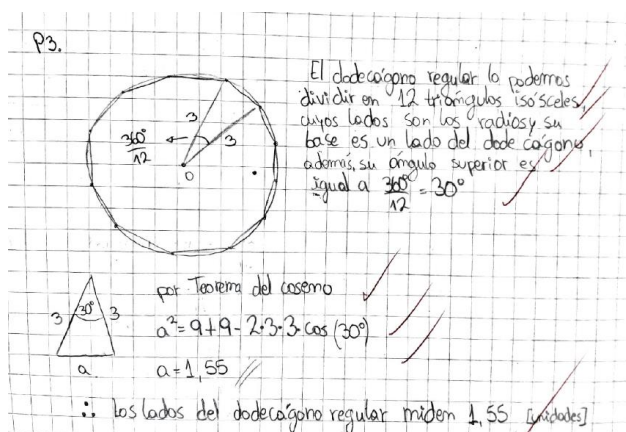 P3.
El dodecágono regular lo podemos
dividir en 12 triángulos isósceles,
cuyos lados son los radios y su
base es un lado del dodecágono,
además, su ángulo superior es
igual a 360°/12 = 30°
3
360°/12
3
O
por Teorema del coseno
3 30° 3
a² = 9+9-2·3·3·cos(30°)
a
a = 1,55
∴ Los lados del dodecágono regular miden 1,55 [unidades]